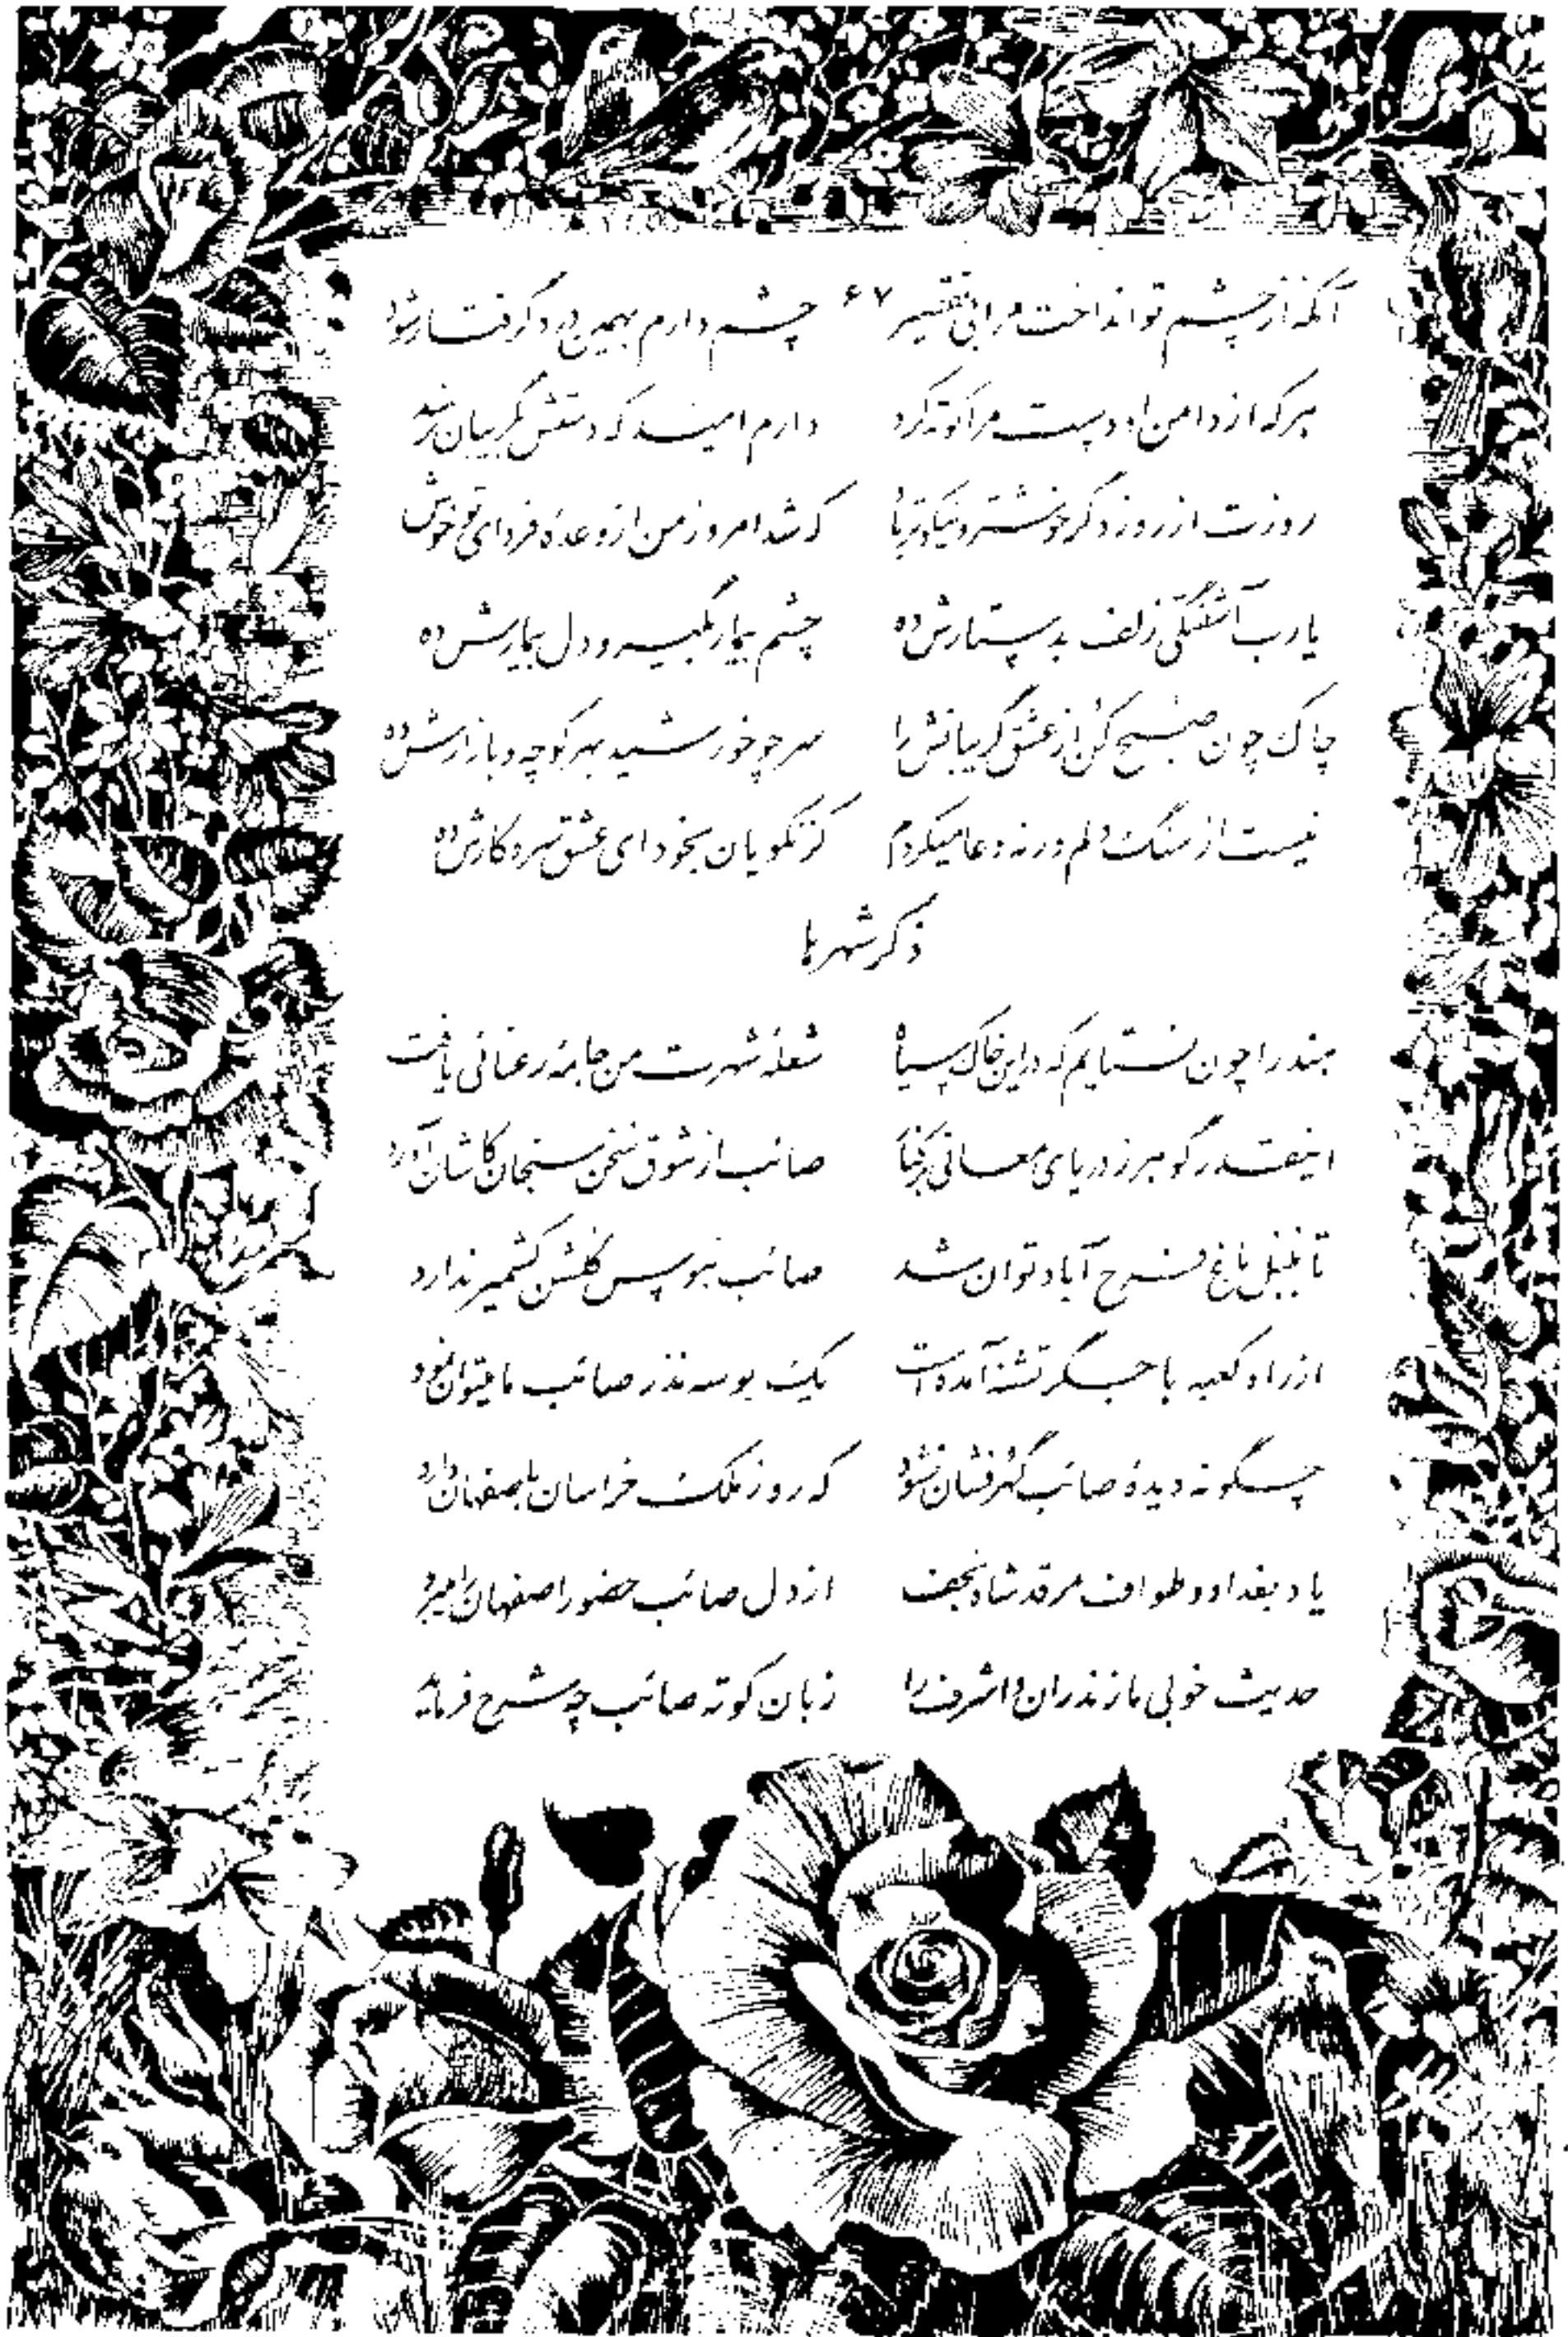 آنکه از چشم تو انداخت مرا بی تقصیر ۶۷ چشم دارم بهمین درد گرفتار شود
هرکه از دامن او دست مرا کوته کرد دارم امید که دستش بگریبان نرسد
روزت از روز دگر خوشتر و نیکوتر باد که شد امروز من از وعدهٔ فردای تو خوش
یارب آشفتگی زلف بدستارش ده چشم بیمار بگیر و دل بیمارش ده
چاک چون صبح کن از عشق گریبانش را سر چو خورشید بهر کوچه و بازارش ده
نیست از سنگ دلم ورنه دعا میکردم کز نکویان بخود ای عشق سروکارش ده
ذکر شهرها
هند را چون نستایم که در این خاک سیاه شعلهٔ شهرت من جامهٔ رعنائی یافت
اینقدر گوهر ز دریای معانی بر کنار صائب از شوق سخن سنجان کاشان آورد
تا بلبل باغ فرح آباد توان شد صائب هوس گلشن کشمیر ندارد
از راه کعبه با جگر تشنه آمده است یک بوسه نذر صائب ما میتوان نمود
چگونه دیدهٔ صائب گهرفشان نشود که رو ز ملک خراسان باصفهان دارد
یاد بغداد و طواف مرقد شاه نجف از دل صائب حضور اصفهان را میبرد
حدیث خوبی مازندران و اشرف را زبان کوته صائب چه شرح فرماید